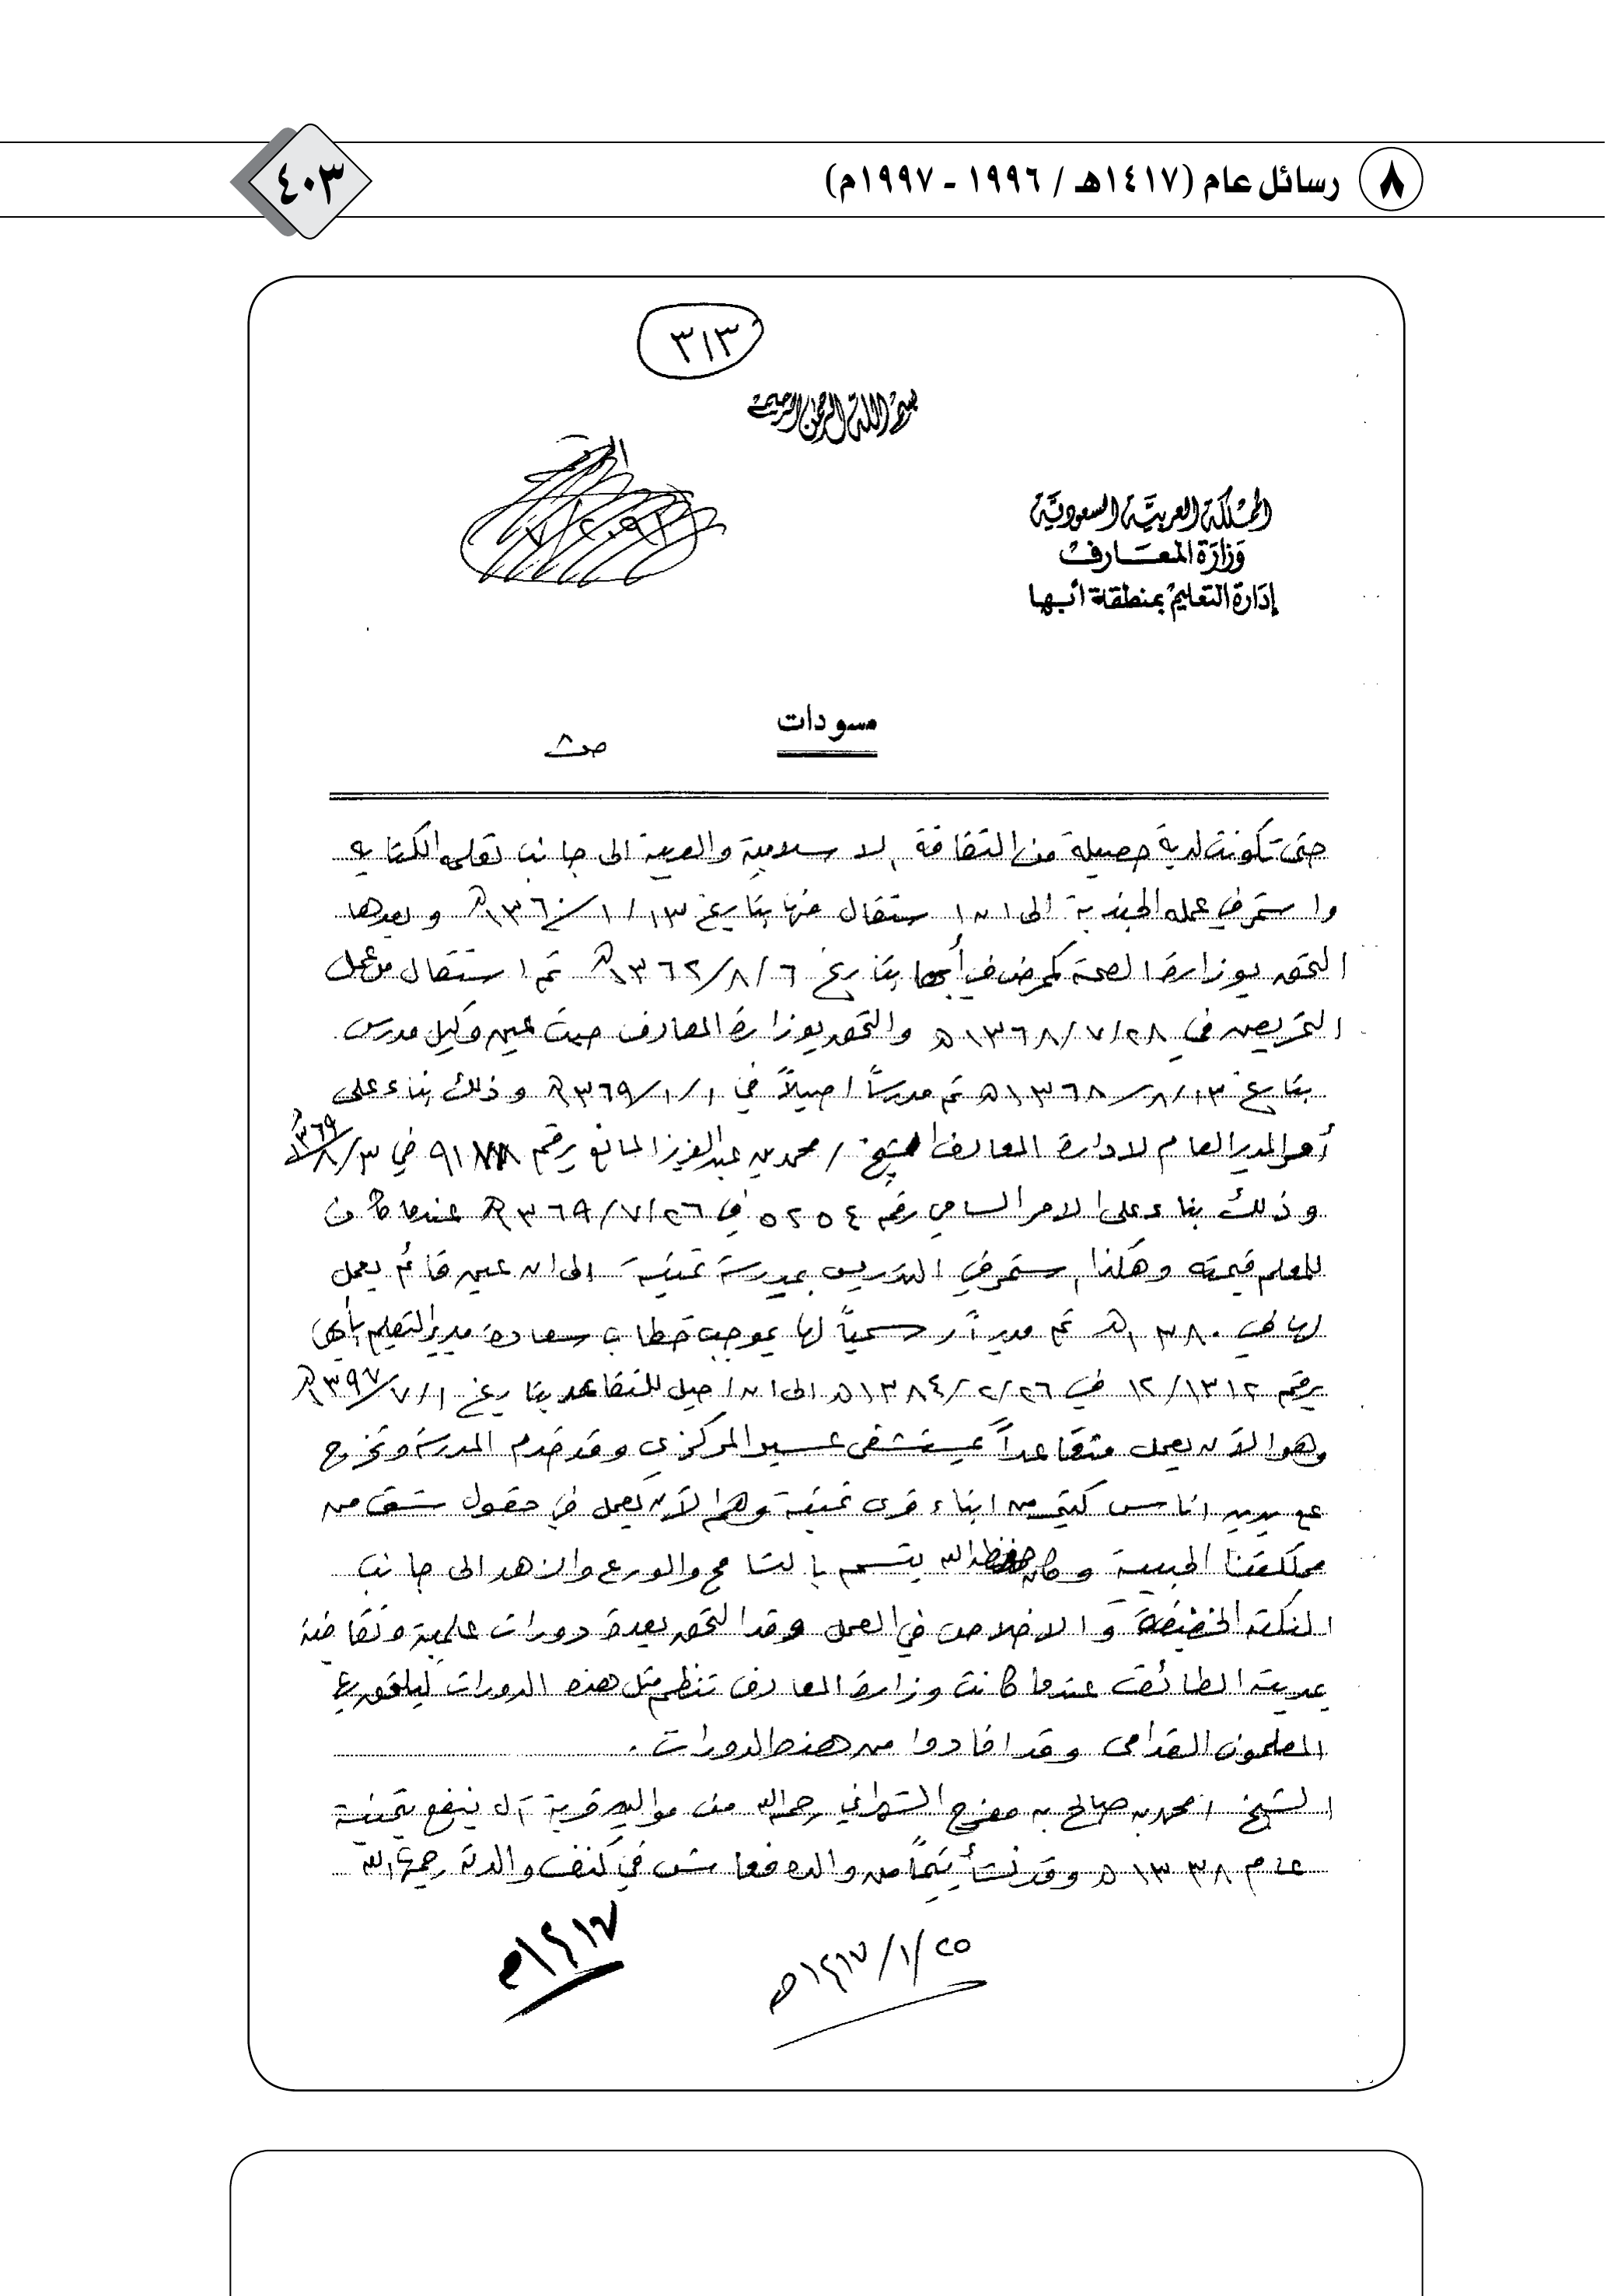 ٨ رسائل عام (١٤١٧هـ / ١٩٩٦ - ١٩٩٧م)
٤٠٣
٣١٣
بسم الله الرحمن الرحيم
المملكة العربية السعودية
وزارة المعارف
إدارة التعليم بمنطقة أبها
مسودات
ص٨
حتى تكونت لديه حصيلة من الثقافة الاسلامية والعربية الى جانب تعلمه الكتابه
واستمر في عمله الجندية الى ان استقال منها بتاريخ ١٣/١/١٣٦٠هـ وبعدها
التحق بوزارة الصحة كممرض في أبها بتاريخ ٦/٨/١٣٦٢هـ ثم استقال من عمل
التمريض في ٢٨/٧/١٣٦٨هـ والتحق بوزارة المعارف حيث عين وكيل مدرس
بتاريخ ١٣/٨/١٣٦٨هـ ثم مدرساً اصيلاً في ١/١/١٣٦٩هـ وذلك بناء على
أمر المدير العام لادارة المعارف الشيخ / محمد بن عبدالعزيز المانع برقم في ٣/٨/١٣٦٩هـ
وذلك بناء على الامر السامي رقم ٥٢٥٤ في ٢٦/٧/١٣٦٩هـ عندما كان
للمعلم قيمته وهكذا استمر في التدريس بمدرسة تمنية الى ان عين قائم بعمل
لها في ١٣٨٠هـ ثم مديراً رسمياً لها بموجب خطاب سعادة مدير التعليم بأبها
برقم ١٢/١٣١٢ في ٢٦/٢/١٣٨٤هـ الى ان احيل للتقاعد بتاريخ ١/٧/١٣٩٧هـ
وهو الآن يعمل متقاعداً بمستشفى عسير المركزي وقد خدم المدرسة وتخرج
على يديه اناس كثير من ابناء قرى تمنية وهم الآن يعمل في حقول شتى من
مملكتنا الحبيبة وكان حفظه الله يتسم بالتسامح والورع والزهد الى جانب
النكته الخفيفة والاخلاص في العمل وقد التحق بعدة دورات علمية وثقافية
بمدينة الطائف عندما كانت وزارة المعارف تنظم مثل هذه الدورات ليلتحق بها
المعلمون القدامى وقد افادوا من هذه الدورات .
الشيخ / محمد بن صالح بن مفرح الشهراني رحمه الله من مواليد قرية آل ينفع بتمنية
عام ١٣٣٨هـ وقد نشأ يتيماً من والده فعاش في كنف والدته رحمها الله
٢٥/١/١٤١٧هـ
١٤١٧هـ